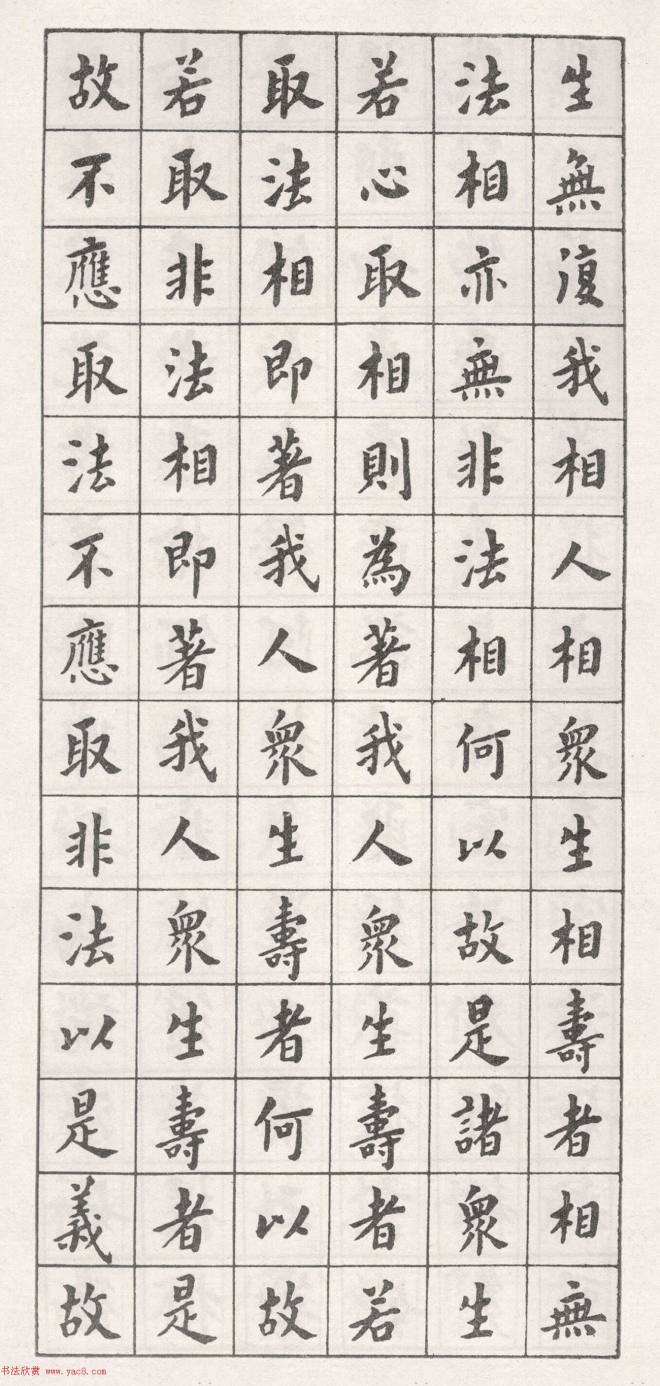 生無復我相人相眾生相壽者相無
法相亦無非法相何以故是諸眾生
若心取相則為著我人眾生壽者若
取法相即著我人眾生壽者何以故
若取非法相即著我人眾生壽者是
故不應取法不應取非法以是義故
书法欣赏 www.yac8.com